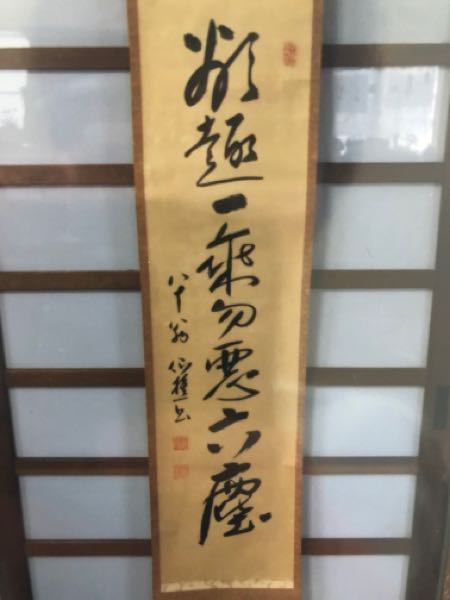 欲趣一乗勿悪六塵
八十翁